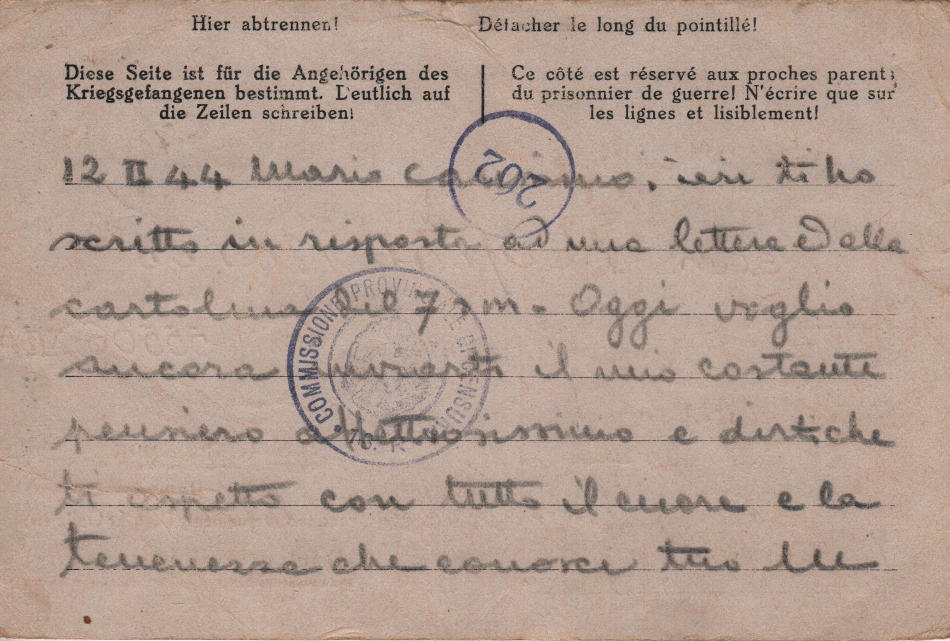 Hier abtrennen!
Détacher le long du pointillé!
Diese Seite ist für die Angehörigen des
Kriegsgefangenen bestimmt. Deutlich auf
die Zeilen schreiben!
Ce côté est réservé aux proches parents
du prisonnier de guerre! N'écrire que sur
les lignes et lisiblement!
202
12 II 44 Mario carissimo, ieri ti ho
scritto in risposta ad una lettera e alla
cartolina del 7 m. Oggi voglio
ancora inviarti il mio costante
pensiero affettuosissimo e dirti che
ti aspetto con tutto il cuore e la
tenerezza che conosci tuo
COMMISSIONE PROVINCIALE DI CENSURA